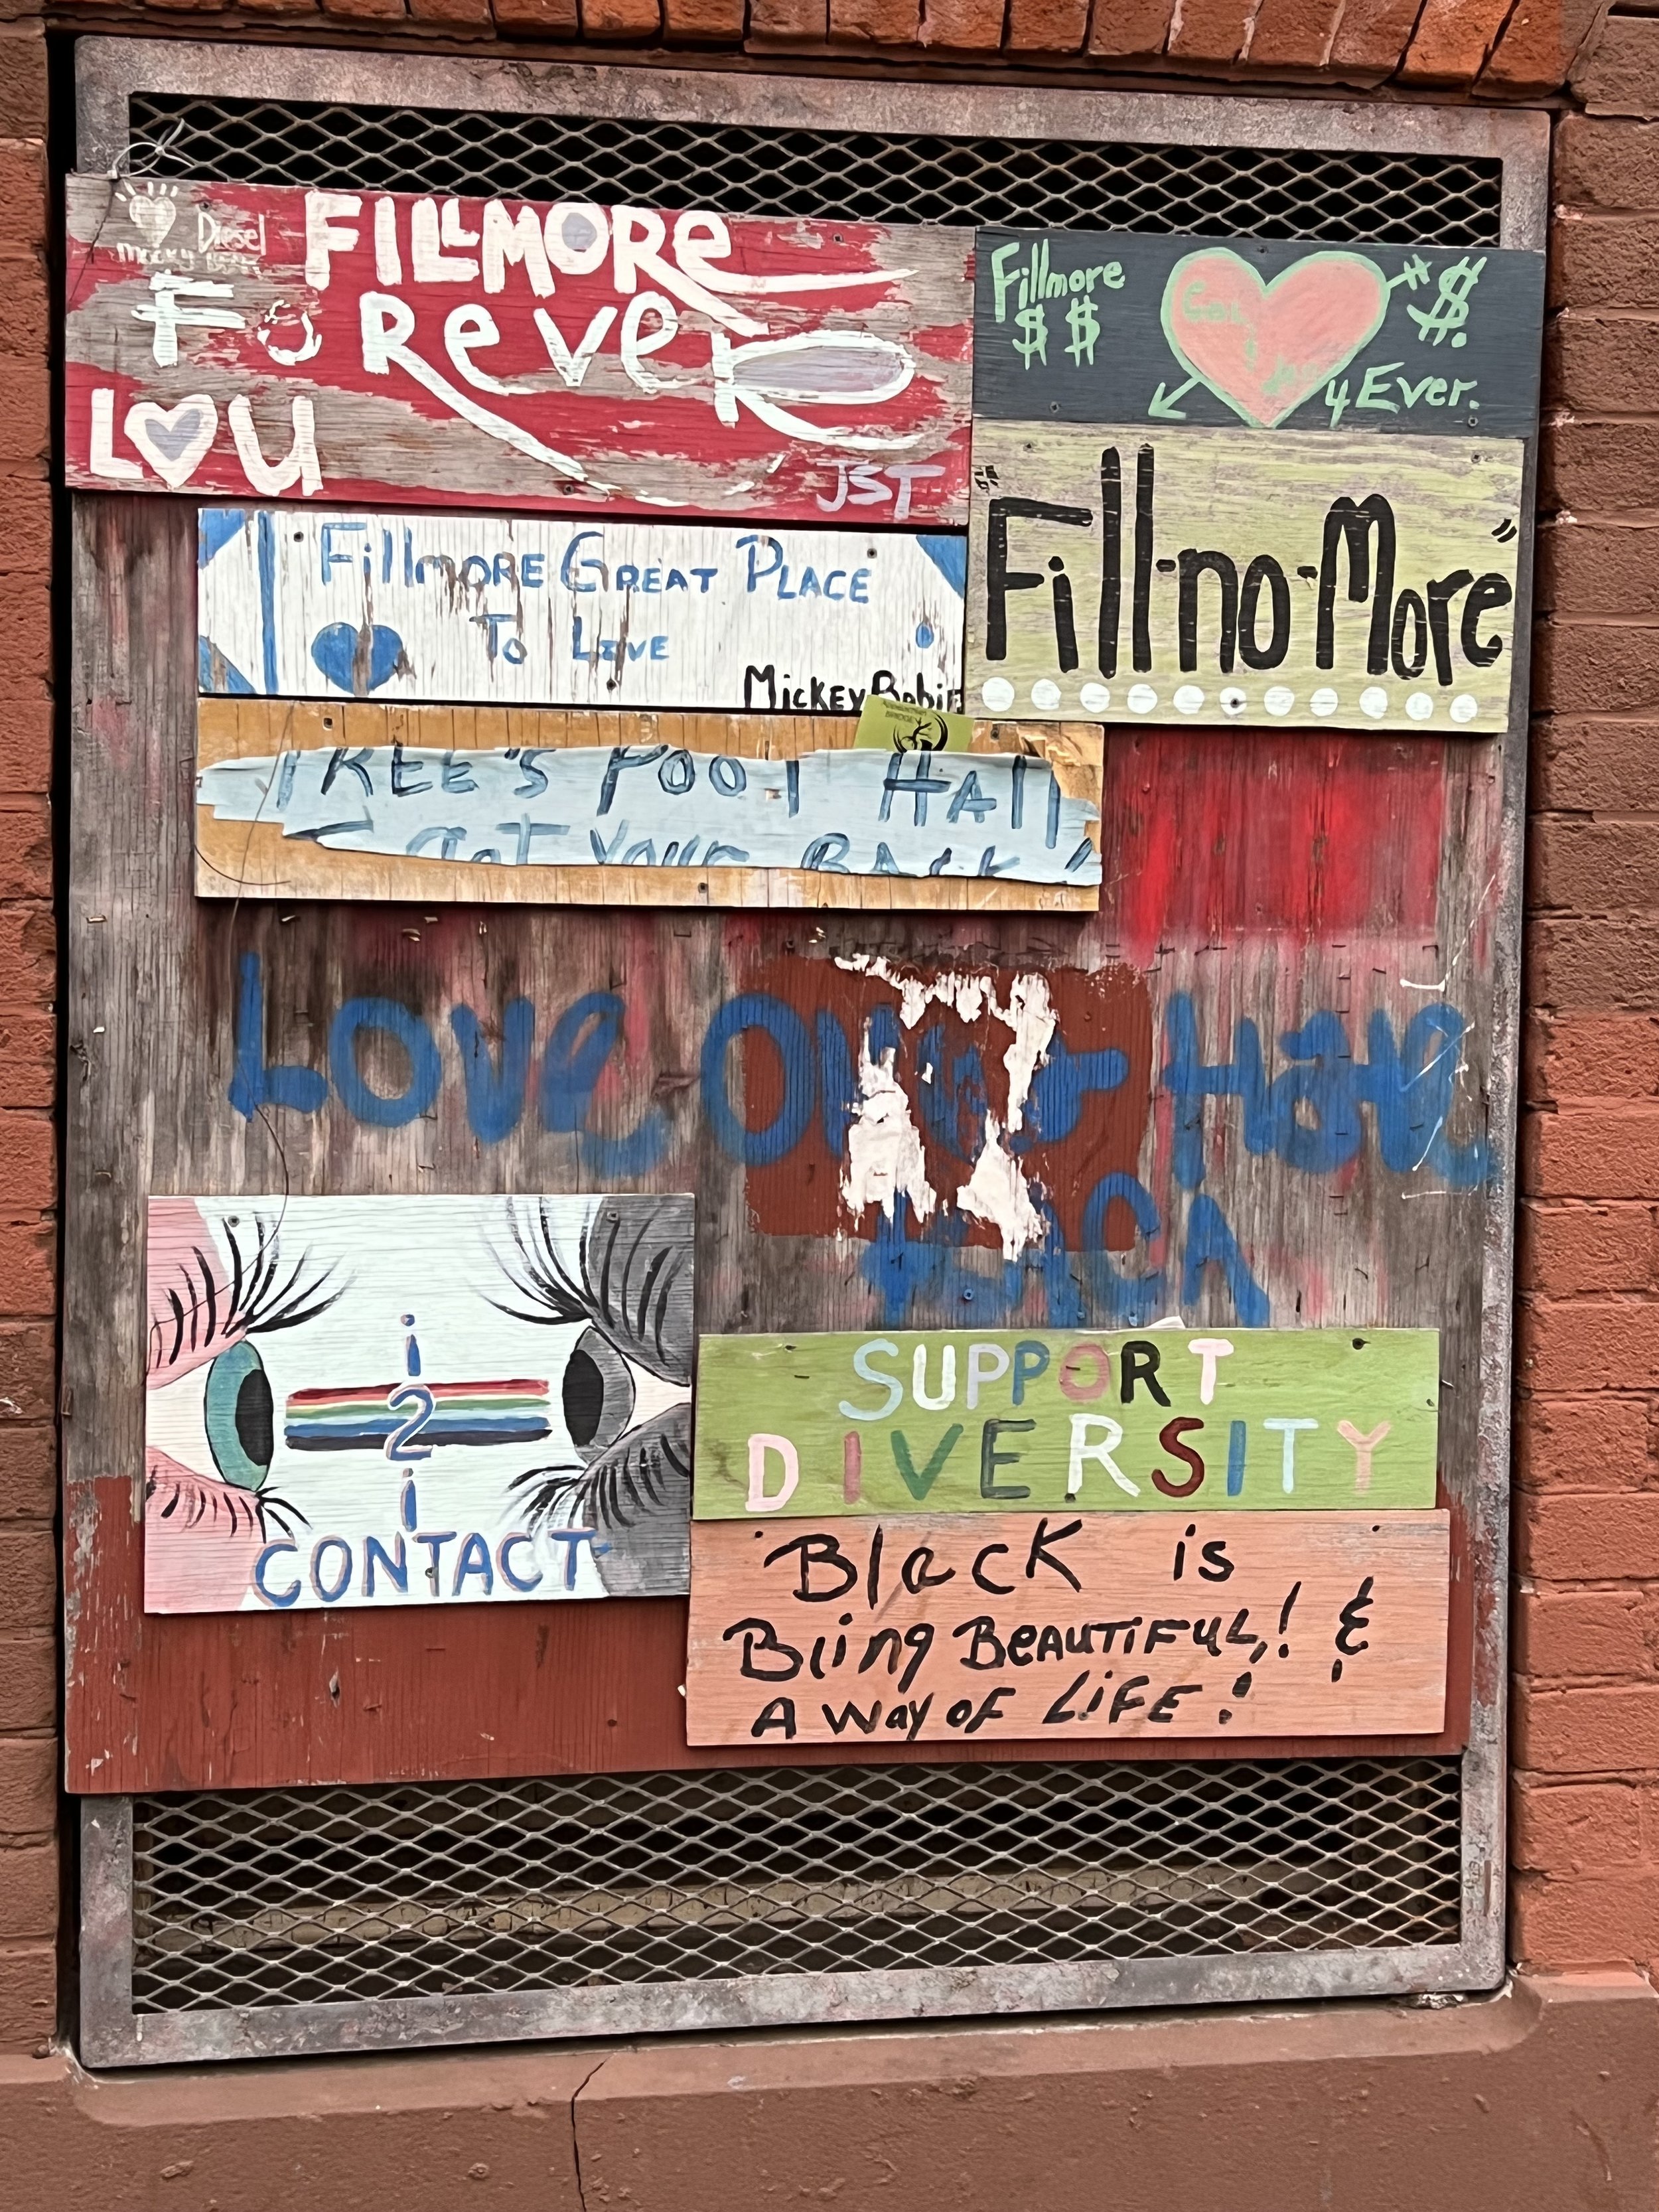 Diesel
FILLMORe
FOReveR
LOU
JST
Fillmore
$ $
$.
4 Ever.
"Fill-no-More"
FillMORE GREAT PLACE
To LIVE
Mickey Robin
TREE'S POOl HAll
Got Your BACK!
LOve Over Hate
i
2
i
CONTACT
SUPPORT
DIVERSITY
Black is
Biing BeAUTiFUL,! &
A WAy OF LiFE!